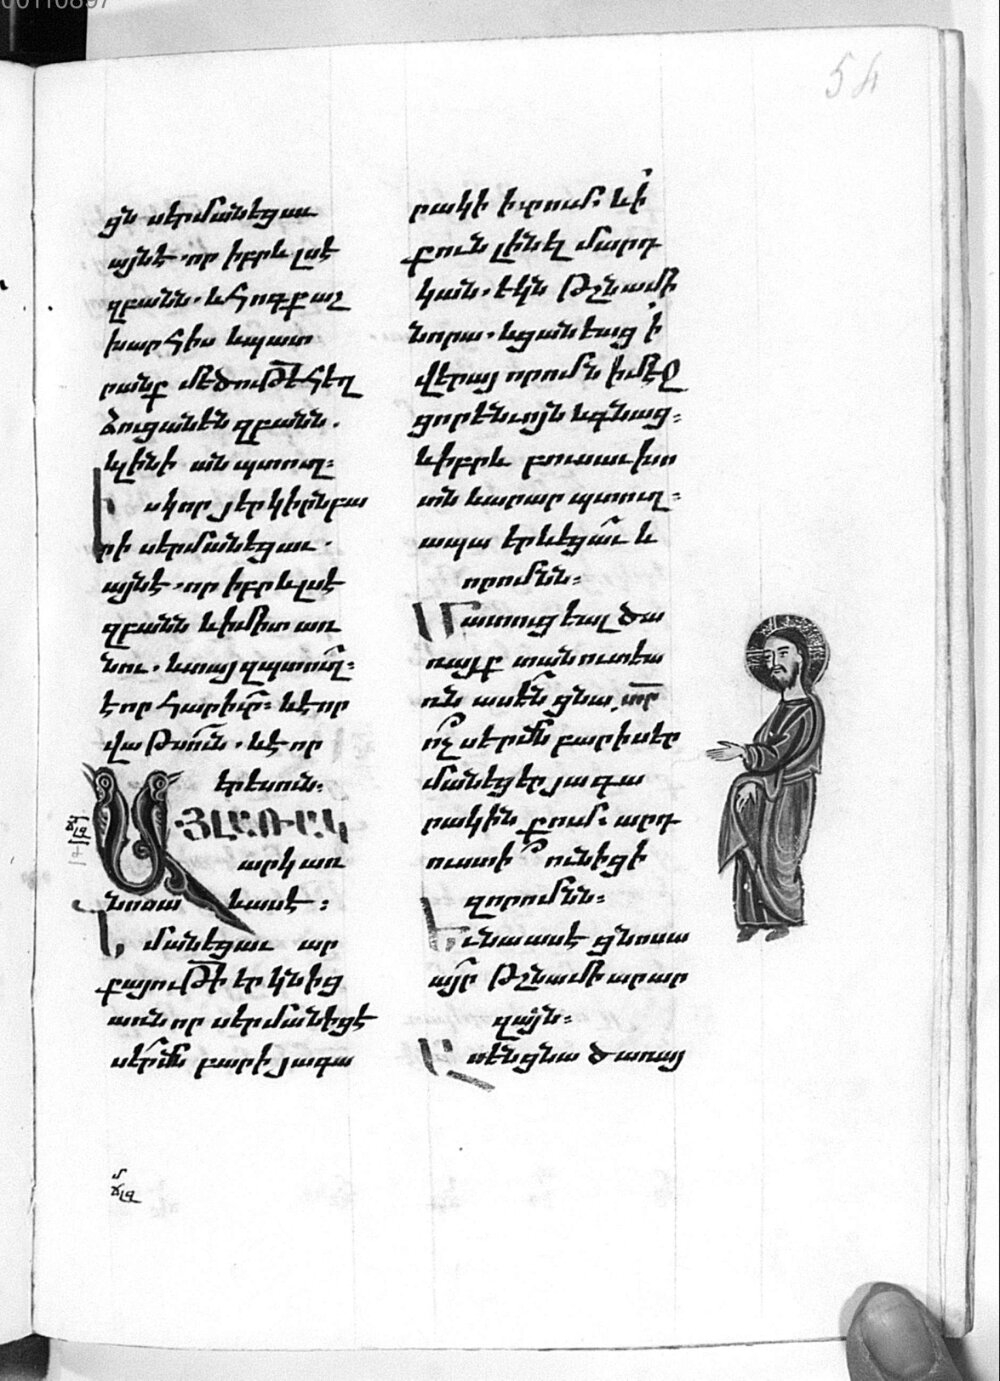 54
ցն սերմանեցաւ
այնէ. որ իբրև լսէ
զբանն. և հոգք աշ
խարհիս և պատ
րանք մեծութէ հեղ
ձուցանեն զբանն.
և լինի անպտուղ։
Իսկ որ յերկիրն բա
րի սերմանեցաւ.
այնէ. որ իբրև լսէ
զբանն և ի միտ առ
նու. և տայ զպտուղ։
է որ հարիւր։ և է որ
վաթսուն. և է որ
երեսուն։
ԱՅԼ ԱՌԱԿ
արկ առ
նոսա և ասէ։
Նմանեցաւ ար
քայութի երկնից
առն որ սերմանիցէ
սերմն բարի յագա
րակի իւրում։ և ի
քուն լինել մարդ
կան. եկն թշնամի
նորա. և ցանեաց ի
վերայ որոմն ի մէջ
ցորենւոյն և գնաց։
և իբրև բուսաւ խո
տն և արար պտուղ։
ապա երևեցաւ և
որոմնն։
Մատուցեալ ծա
ռայք տանուտեա
ռն ասեն ցնա. տր
ոչ սերմն բարի սեր
մանեցեր յագա
րակին քում։ արդ
ուստի ունիցի
զորոմնն։
Եւ նա ասէ ցնոսա
այր թշնամի արար
զայն։
Ասեն ցնա ծառայ